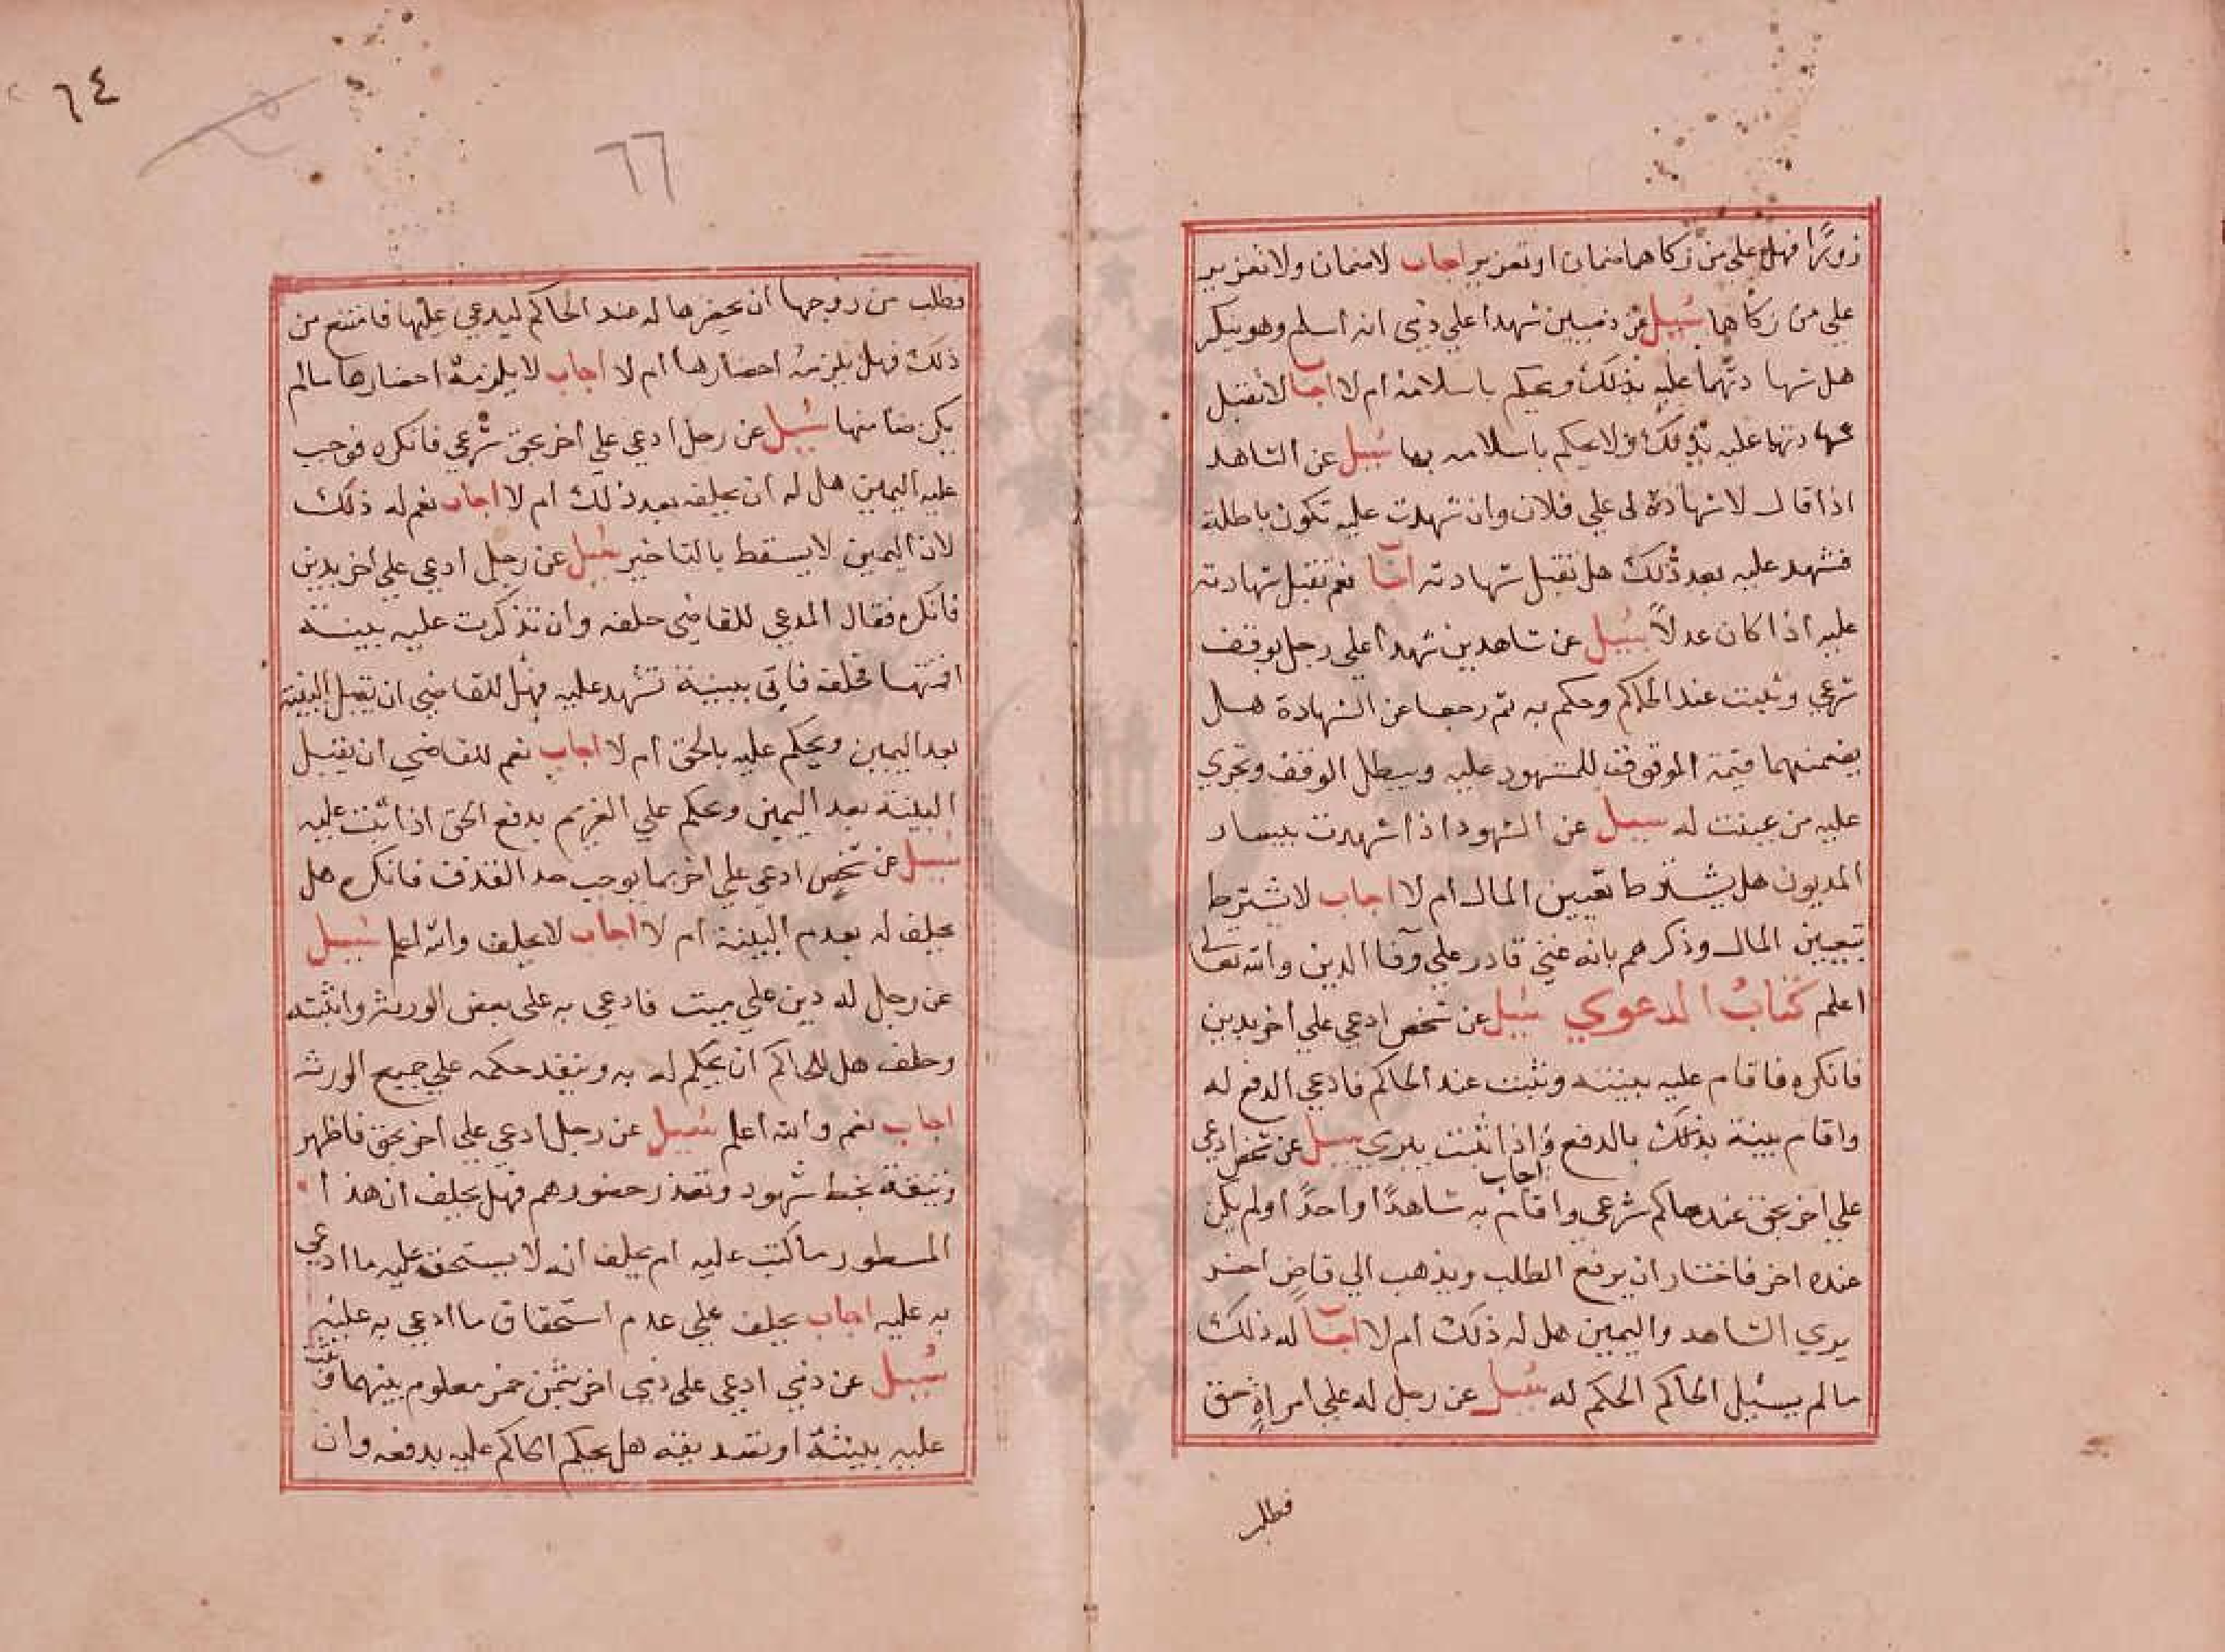 زورًا فهل علي من زكاهما ضمان او تعزير اجاب لا ضمان ولا تعزير
علي من زكاهما سيل عن ذميين شهدا علي ذمي انه اسلم وهو ينكر
هل شهادتهما عليه بذلك ويحكم باسلامه ام لا اجاب لا تقبل
شهادتهما عليه بذلك ولا يحكم باسلامه بها سيل عن الشاهد
اذا قال لا شهادة لي علي فلان وان شهدت عليه تكون باطلة
فشهد عليه بعد ذلك هل تقبل شهادته اجاب نعم تقبل شهادته
عليه اذا كان عدلاً سيل عن شاهدين شهدا علي رجل بوقف
شرعي وثبت عند الحاكم وحكم به ثم رجعا عن الشهادة هل
يضمنهما قيمة الموقوف للمشهود عليه ويبطل الوقف وتجري
عليه من عينت له سيل عن الشهود اذا شهدت بيسار
المديون هل يشترط تعيين المال ام لا اجاب لا يشترط
تعيين المال وذكرهم بانه غني قادر علي وفا الدين والله تعالى
اعلم كتاب الدعوي سيل عن شخص ادعي علي اخر بدين
فانكره فاقام عليه ببينته وثبت عند الحاكم فادعي الدفع له
واقام بينة بذلك بالدفع اجاب واذا ثبت يبري سيل عن شخص ادعي
علي اخر بحق عند حاكم شرعي واقام به شاهدًا واحدًا ولم يكن
عنده اخر فاختار ان يرفع الطلب ويذهب الي قاض اخر
يري الشاهد واليمين هل له ذلك ام لا اجاب له ذلك
ما لم يسيل الحاكم الحكم له سيل عن رجل له علي امراة حق
فطلب
٦٤
٦٦
فطلب من زوجها ان يحضرها له عند الحاكم ليدعي عليها فامتنع من
ذلك فهل يلزمه احضارها ام لا اجاب لا يلزمه احضارها ما لم
يكن ضامنها سيل عن رجل ادعي علي اخر بحق شرعي فانكره فوجب
عليه اليمين هل له ان يحلفه بعد ذلك ام لا اجاب نعم له ذلك
لان اليمين لا يسقط بالتاخير سيل عن رجل ادعي علي اخر بدين
فانكره فقال المدعي للقاضي حلفه وان تذكرت عليه بينة
اقمتها فحلفه فاتي ببينة تشهد عليه فهل للقاضي ان يقبل البينة
بعد اليمين ويحكم عليه بالحق ام لا اجاب نعم للقاضي ان يقبل
البينة بعد اليمين وحكم علي الغريم بدفع الحق اذا ثبت عليه
سيل عن شخص ادعي علي اخر بما يوجب حد القذف فانكره هل
يحلف له بعدم البينة ام لا اجاب لا يحلف والله اعلم سيل
عن رجل له دين علي ميت فادعي به علي بعض الورثة واثبته
وحلف هل للحاكم ان يحكم له به وينفد حكمه علي جميع الورثه
اجاب نعم والله اعلم سيل عن رجل ادعي علي اخر بحق فاظهر
وثيقة بخط شهود وتعذر حضورهم فهل يحلف ان هذا
المسطور ما كتب عليه ام يحلف انه لا يستحق عليه ما ادعي
به عليه اجاب يحلف علي عدم استحقاق ما ادعي به عليه
سيل عن ذمي ادعي علي ذمي اخر بثمن خمر معلوم بينهما وثبت
عليه ببينة او تصديقه هل يحكم الحاكم عليه بدفعه وان